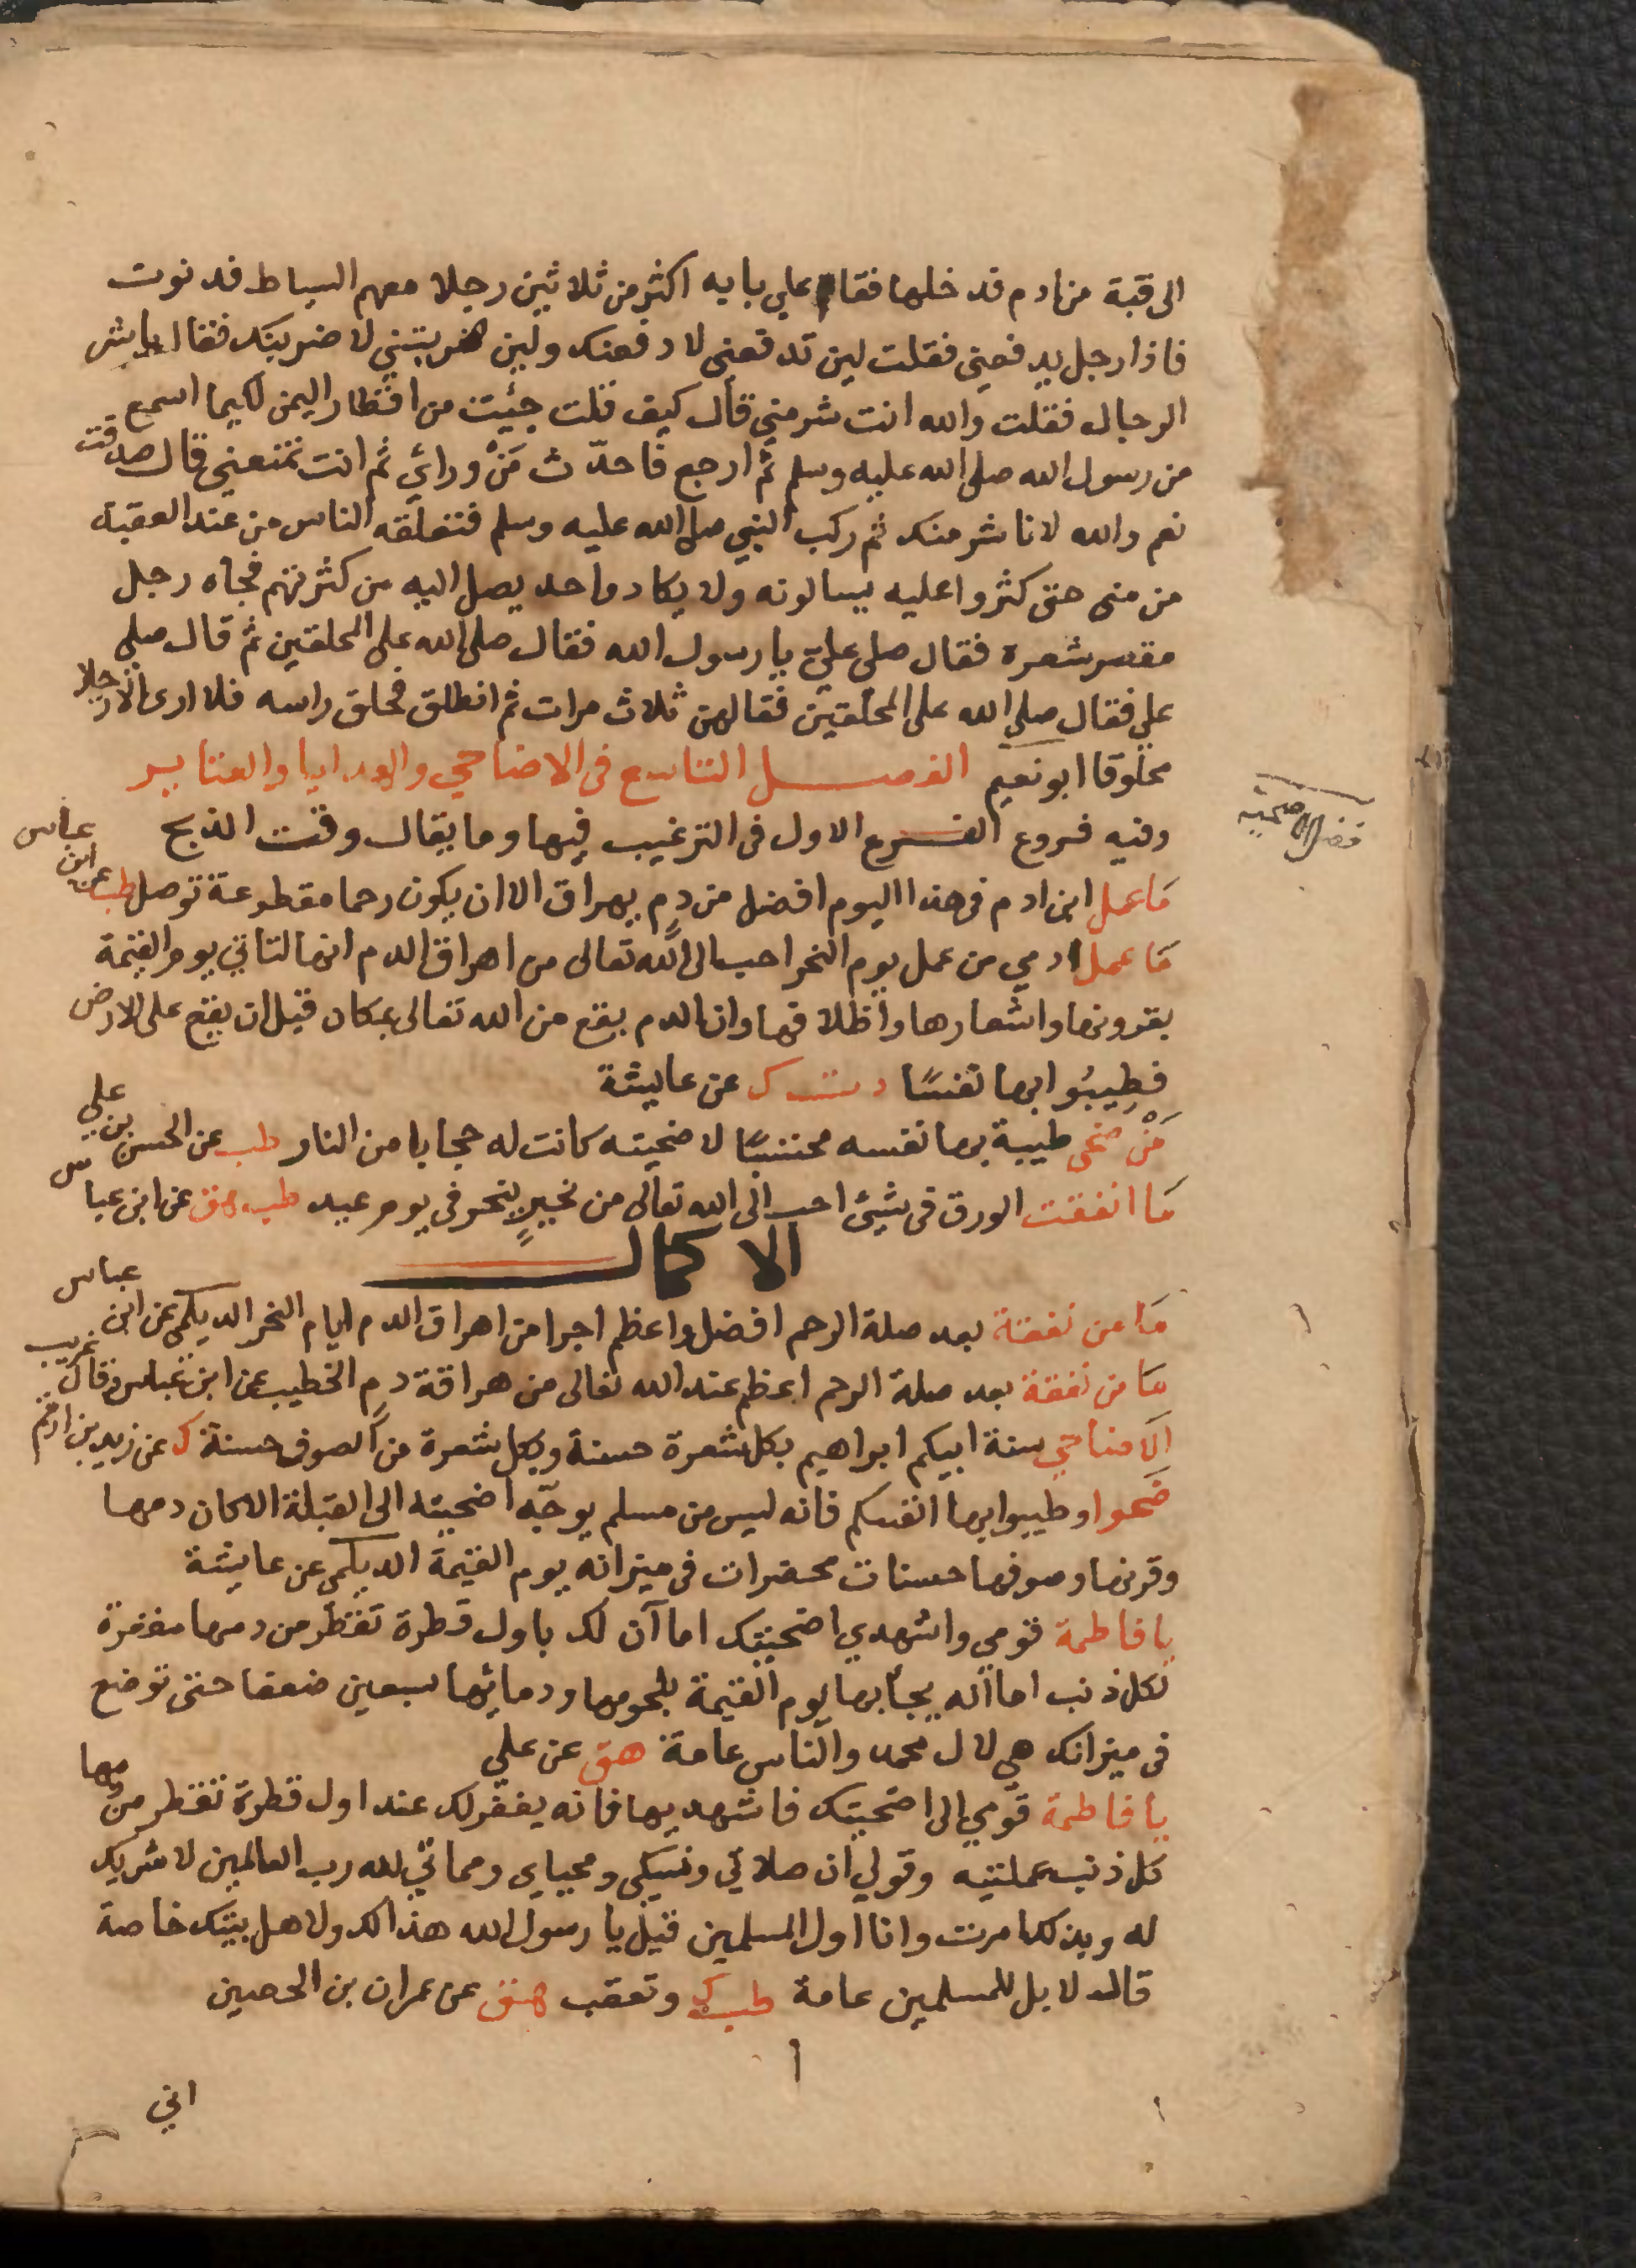 الى قبة من ادم قد خلها فقام على بابه اكثر من ثلاثين رجلا معهم السياط فدنوت
فاذا رجل يدفعنى فقلت لين تدفعنى لادفعنك ولين ضربتني لاضربنك فقال يا شر
الرجال فقلت والله انت شر مني قال كيف قلت جئيت من اقطار اليمن لكيما اسمع
من رسول الله صلى الله عليه وسلم ثم ارجع فاحدّث مَنْ ورائي ثم انت تمنعنى قال صدقت
نعم والله لانا شر منك ثم ركب النبي صلى الله عليه وسلم فتعلقه الناس من عند العقبة
من منى حتى كثروا عليه يسالونه ولا يكاد واحد يصل اليه من كثرتهم فجاه رجل
مقصر شعره فقال صلى عليّ يا رسول الله فقال صلى الله على المحلقين ثم قال صلى
علي فقال صلى الله على المحلقين فقالهن ثلاث مرات ثم انطلق فحلق راسه فلا ارى الا رجلا
محلوقا ابو نعيم الفصل التاسع فى الاضاحي والهدايا والعتاير
فضل الاضحيه
وفيه فروع الفرع الاول فى الترغيب فيها وما يقال وقت الذبح
مَا عمل ابن ادم فى هذا اليوم افضل من دمٍ يهراق الا ان يكون رحما مقطوعة توصل طب عن ابن عباس
مَا عمل ادمي من عمل يوم النحر احب الى الله تعالى من اهراق الدم انها لتاتي يوم القيمة
بقرونها واشعارها واظلافها وان الدم يقع من الله تعالى بمكان قبل ان يقع على الارض
فطِيبُوا بها نفسًا ت ك عن عايشة
مَنْ ضحى طيبة بها نفسه محتسبًا لاضحيته كانت له حجابا من النار طب عن الحسن بن علي
مَا انفقت الورق فى شيئ احب الى الله تعالى من نحيرٍ ينحر فى يوم عيد طب هق عن ابن عباس
الاكمال
مَا من نفقة بعد صلة الرحم افضل واعظم اجرا من اهراق الدم ايام النحر الديلمي عن ابن عباس
مَا من نفقة بعد صلة الرحم اعظم عند الله تعالى من هراقة دمٍ الخطيب عن ابن عباس وقال غريب
الاضاحي سنة ابيكم ابراهيم بكل شعرة حسنة وبكل شعرة من الصوف حسنة ك عن زيد بن ارقم
ضَحوا وطيبوا بها انفسكم فانه ليس من مسلم يوجّه اضحيته الى القبلة الا كان دمها
وقرنها وصوفها حسنات محضرات فى ميزانه يوم القيمة الديلمي عن عايشة
يا فاطمة قومي واشهدي اضحيتك اما آن لك باول قطرة تقطر من دمها مغفرة
لكل ذنب اما انه يجأ بها يوم القيمة بلحومها ودمائها سبعين ضعفا حتى توضع
فى ميزانك هي لال محمد والناس عامة هق عن علي
يا فاطمة قومي الى اضحيتك فاشهديها فانه يغفر لك عند اول قطرة تقطر من دمها
كل ذنب عملتيه وقولي ان صلاتي ونسكي ومحياى ومماتي لله رب العالمين لا شريك
له وبذلك امرت وانا اول المسلمين قيل يا رسول الله هذا لك ولاهل بيتك خاصة
قال لا بل للمسلمين عامة طب ك وتعقب هق عن عمران بن الحصين
اني